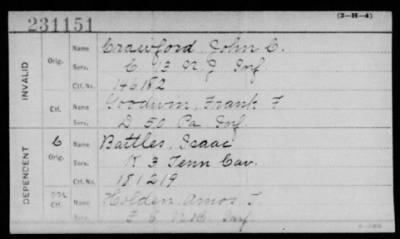 231151
(3-H-4)
INVALID
Orig. Name Crawford, John C.
Serv. C 13 N. J. Inf
Ctf. No. 146182
Ctf. Name Goodwin, Frank F
Serv. D 50 Pa Inf.
DEPENDENT
C Orig. Name Battles, Isaac
Serv. K 3 Tenn Cav.
Ctf. No. 181219
Ctf. Name Holden, Amos T.
Serv. N.H. Inf